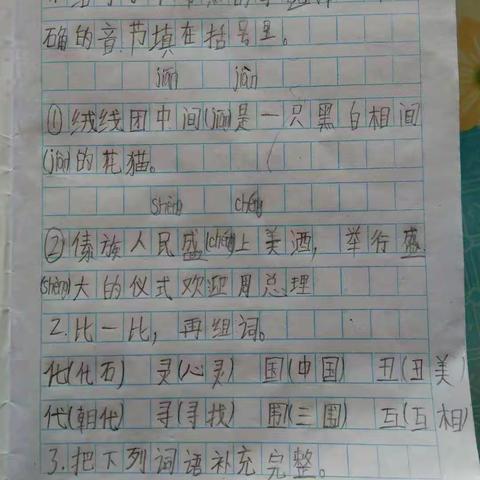 确的音节填在括号里。
jiān jiàn
①绒线团中间(jiān)是一只黑白相间
(jiàn)的花猫。
shèng chéng
②傣族人民盛(chéng)上美酒，举行盛
(shèng)大的仪式欢迎周总理
2.比一比，再组词。
化(化石) 灵(心灵) 国(中国) 丑(丑美)
代(朝代) 寻(寻找) 围(三围) 互(互相)
3.把下列词语补充完整。